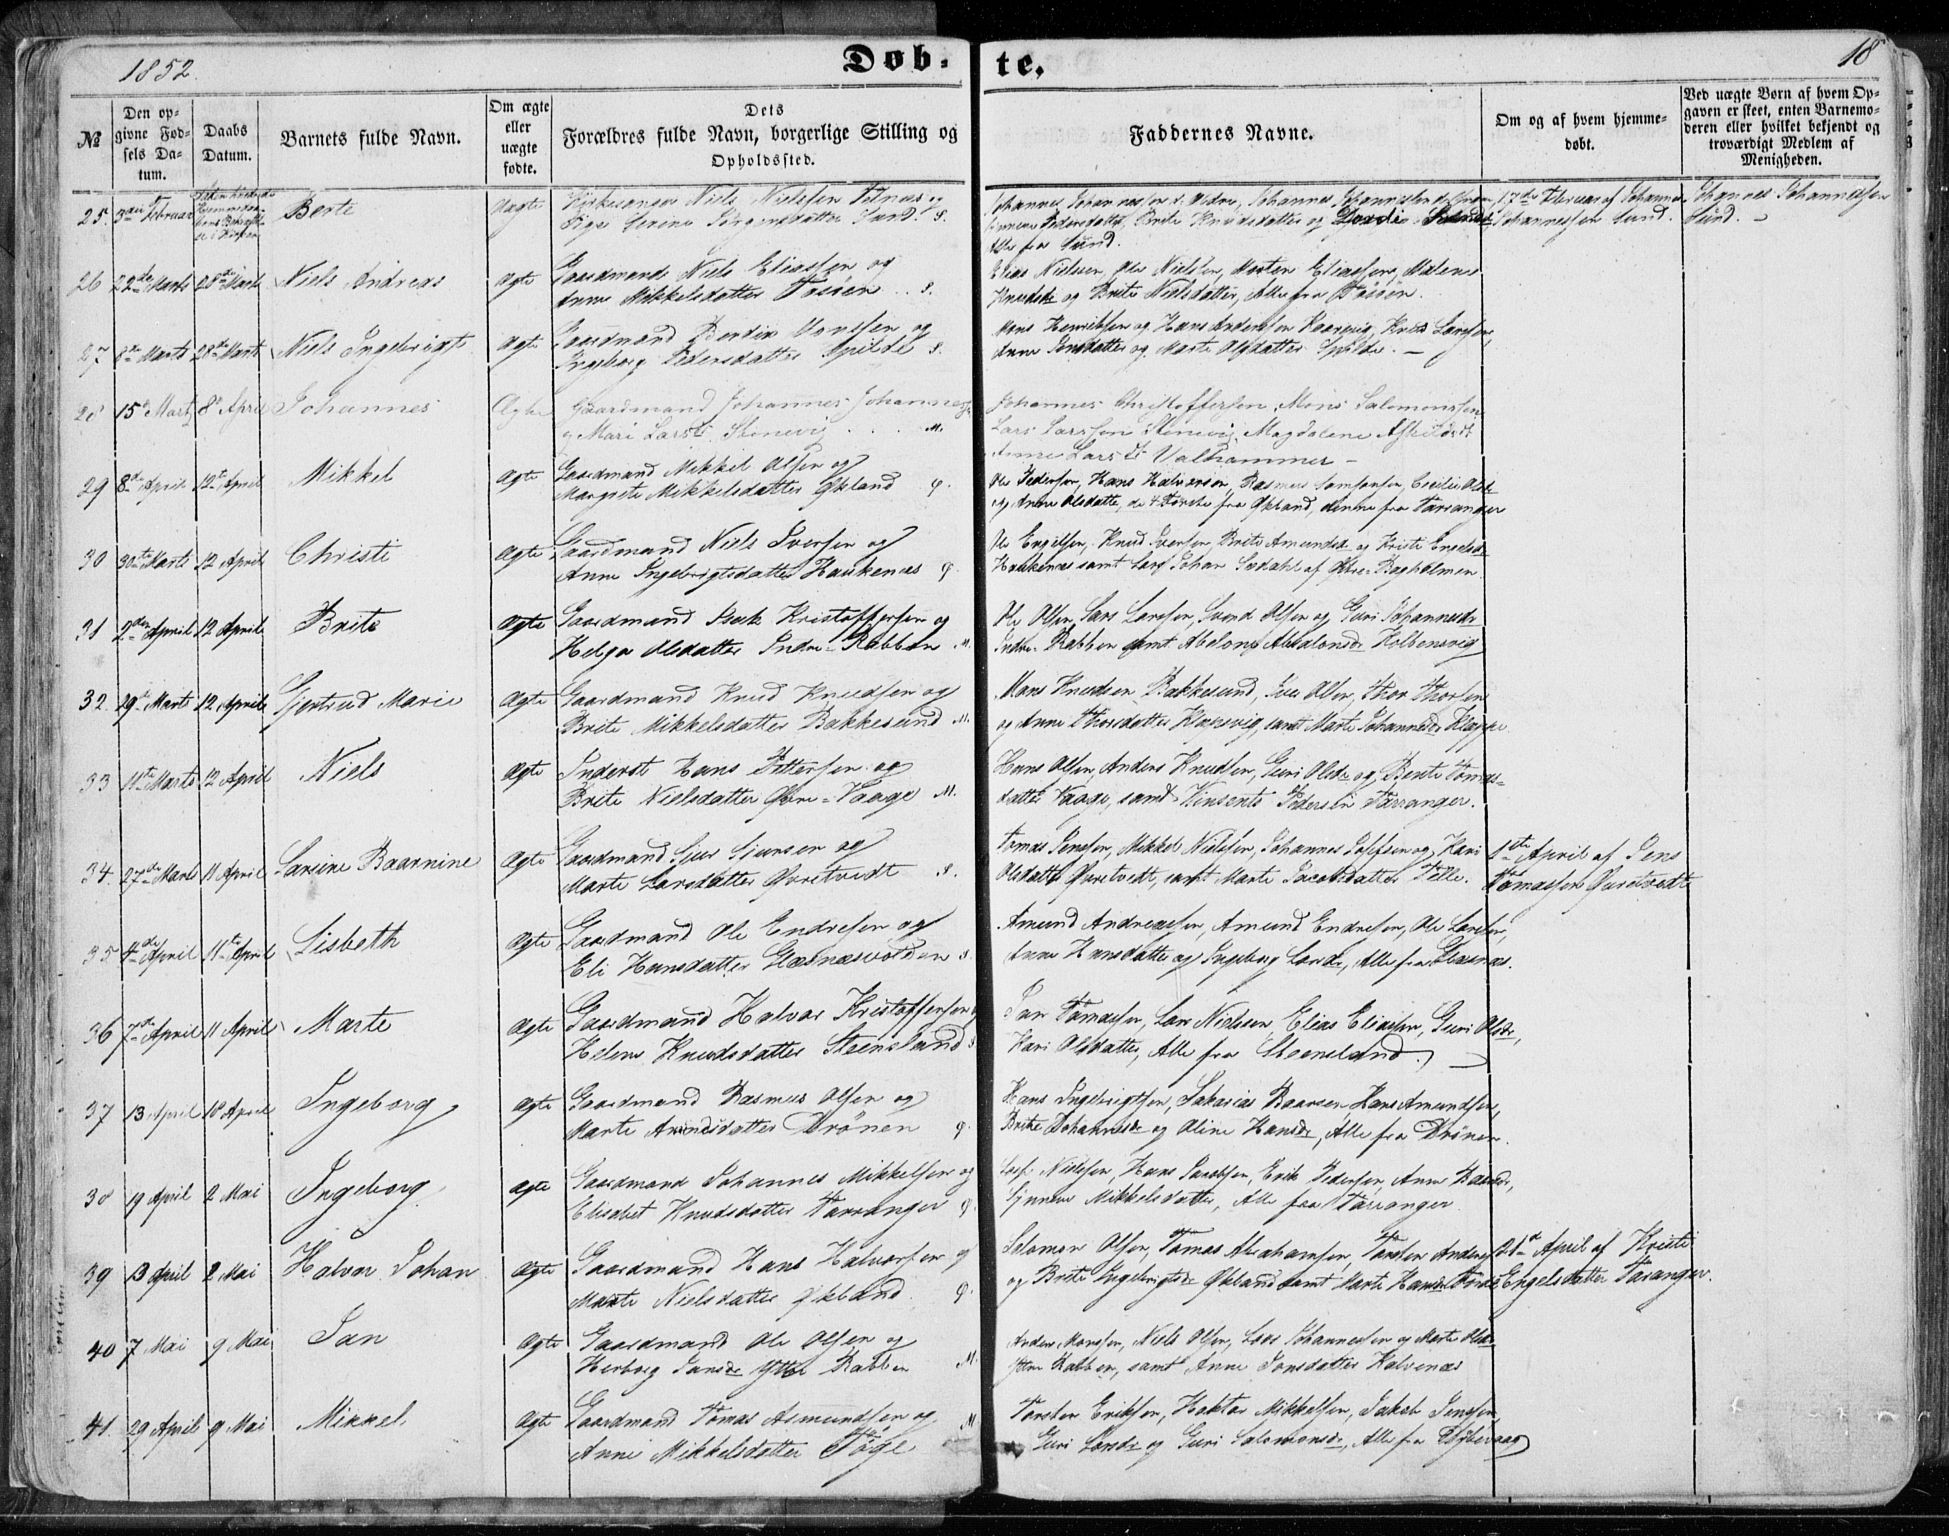 1852. Døb- te. 18
No
Den opgivne Fødsels Datum.
Daabs Datum.
Barnets fulde Navn.
Om ægte eller uægte fødte.
Dets Forældres fulde Navn, borgerlige Stilling og Opholdssted.
Faddernes Navne.
Om og af hvem hjemmedøbt.
Ved uægte Børn af hvem Opgaven er skeet, enten Barnemoderen eller hvilket bekjendt og troværdigt Medlem af Menigheden.
25. 3die Februar Berte Uægte Niels Nielssen og
Pige Serine Sund. S.
Johannes
Brite Knudsdatter og
Alle fra Sund.
17de Februar af Johannes
Johannessen Sund.
Johannes Johannessen
Sund.
26 22de Marts 28de Marts Niels Andreas Ægte Gaardmand Niels Eliassen og
Anne Mikkelsdatter S.
Elias Nielssen, Ole Nielssen, Morten Eliassen, Malene
Knudsdr og Brite Nielsdatter, Alle fra
27 6te Marts 28de Marts Niels Ingebrigt Ægte Gaardmand Monssen og
Ingeborg Pedersdatter Spilde S.
Mons Henrikssen og Hans Anderssen
Anne Jensdatter og Marte Olsdatter Spilde.
28 15 Marts 8de April Johannes Ægte Gaardmand Johannes Johannes
og Mari Larsd. Steinevig M.
Johannes Christoffersen, Mons Salomonssen
Lars Larssen Steinevig, Magdalene
Anne Larsd. Valhammer
29 8de April 12te April Mikkel Ægte Gaardmand Mikkel Olsen og
Margrete Mikkelsdatter Økland Q.
Ole Pedersen, Hans Halvorsen, Rasmus Samsonsen, Cecilie Olsdr
og Anne Olsdatter, de 4 Første fra Økland, denne fra Tarranger
30 30te Marts 12 April Christi Ægte Gaardmand Niels Iversen og
Anne Ingebrigtsdatter Haukenæs Q.
Ole Engelssen, Knud Iversen, Brite Amundsdr og Kristi Engelsdr
Haukenæs samt Lars Johan Sodahl af Bagholmen
31 2den April 12 April Brite Ægte Gaardmand Isak Kristoffersen og
Helga Olsdatter Indre-Rabben M.
Ole Olsen, Lars Larssen, Svend Olsen og Guri Johannesdr
Indre-Rabben samt Abelone Absalonsdr
32. 29de Marts 12 April Gjertrud Marie Ægte Gaardmand Knud Knudsen og
Brite Mikkelsdatter Bakkesund M.
Hans Knudsen Bakkesund, Iver Olsen, Thor Thorsen
og Anne Thorsdatter samt Marte Johannesdr
33 11te Marts 12 April Niels Ægte Inderst Hans Pettersen og
Brite Nielsdatter Øvre-Vaage M.
Hans Olsen, Anders Knudsen, Guri Olsdr og Bente Tomas-
datter Vaage, samt Vinsents Pedersen Tarranger.
34. 27de Marts 11 April Larsine Baarnine Ægte Gaardmand Sjur Sjursen og
Marte Larsdatter Qvretvedt S.
Tomas Jenssen, Mikkel Nielssen, Johannes og Kari
Olsdatter Qvretvedt, samt Marte Jacobsdatter Telle.
1ste April af Jens
Tomassen Qvretvedt
35 4de April 11te April Lisbeth Ægte Gaardmand Ole Endresen og
Eli Hansdatter Glæsnæsvolden S.
Amund Andreassen, Amund Endresen, Ole Larsen,
Anne Hansdatter og Ingeborg Larsdr, Alle fra Glæsnæs.
36 7de April 11 April Marte Ægte Gaardmand Halvor Kristoffersen og
Helene Knudsdatter Steensland S
Jan Tomassen, Lars Nielssen, Elias Eliassen, Guri Olsdr,
Kari Olsdatter, Alle fra Steensland.
37 13 April 18 April Ingeborg Ægte Gaardmand Rasmus Olsen og
Marte Amundsdatter Drönen Q.
Hans Ingebrigtsen, Sakarias Baarsen, Hans Amundsen,
Brite Johannesdr og Oline Hansdr, Alle fra Drönen.
38 19 April 2 Mai Ingeborg Ægte Gaardmand Johannes Mikkelsen og
Elisabet Knudsdatter Tarranger Q.
Nielssen, Hans Jacobsen, Erik Pedersen, Anne
Mikkelsdatter, Alle fra Tarranger
39 13 April 2 Mai Halvor Johan Ægte Gaardmand Hans Halvorsen og
Marte Nielsdatter Økland Q.
Salomon Olsen, Tomas Abrahamsen, Torsten Anders
og Brite Ingebrigtsdr Økland samt Marte Hansdr
21de April af Kristi
Engelsdatter Taranger.
40 7 Mai 9 Mai Jan Ægte Gaardmand Ole Olsen og
Herborg Jansdr Yttre Rabben M.
Anders Monssen, Niels Olsen, Lars Johannessen og Marte Olsdr
Yttre Rabben, samt Anne Jonsdatter Kalvenæs
41. 29 April 9 Mai Mikkel Ægte Gaardmand Tomas Asmundsen og M
Anne Mikkelsdatter
Torsten Erikssen, Haktor Mikkelsen, Jakob Jenssen,
Guri Larsdr og Guri Salomonsdr, Alle fra